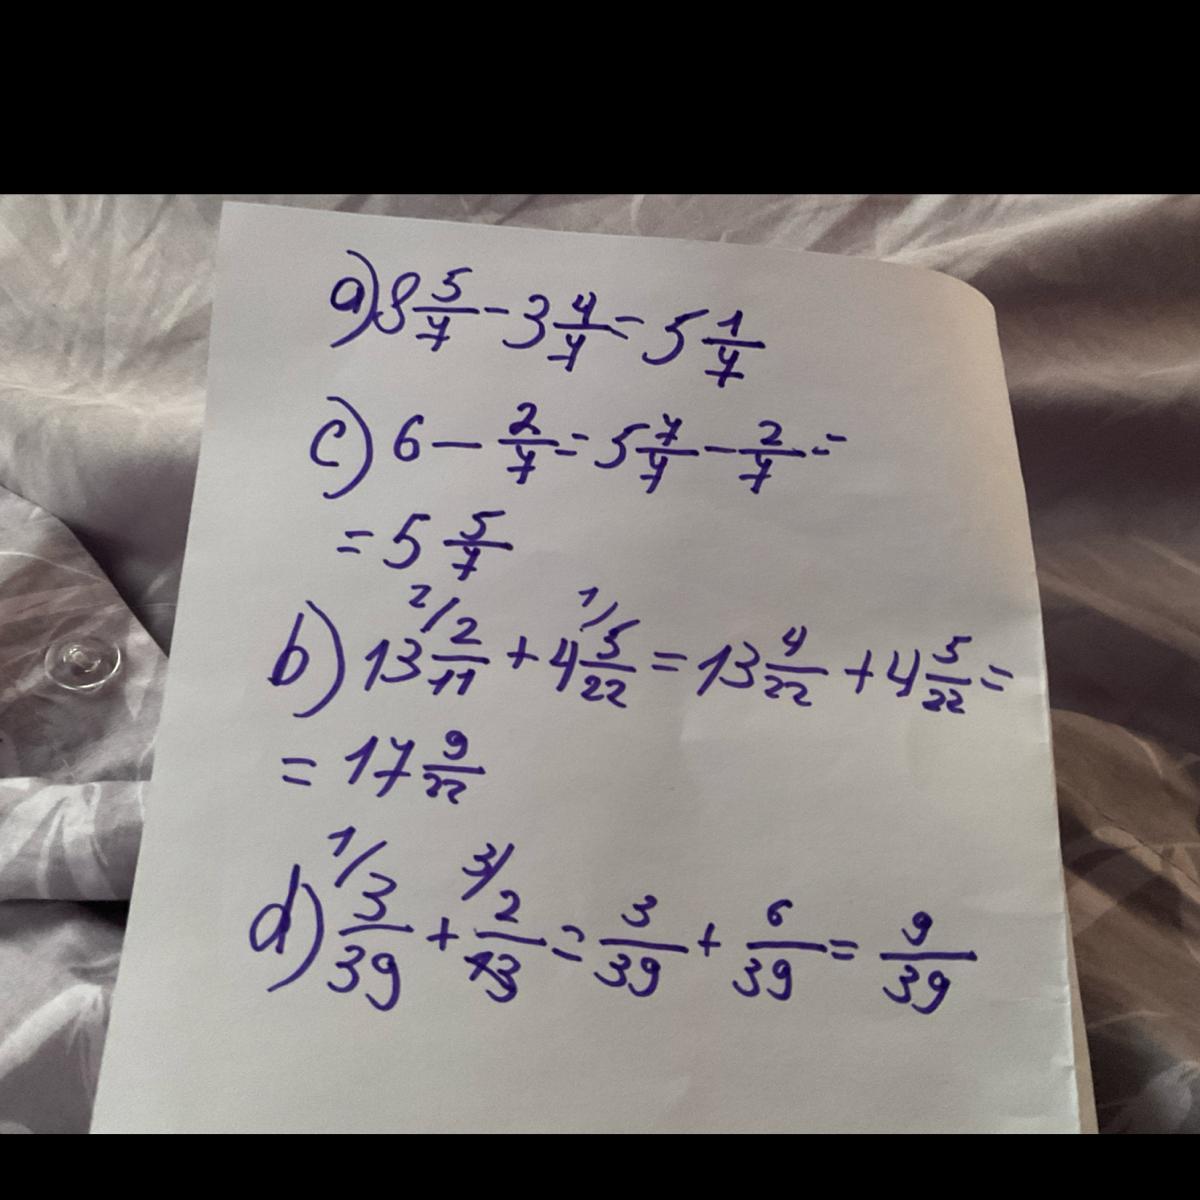 a) 8 5/7 - 3 4/7 = 5 1/7
c) 6 - 2/7 = 5 7/7 - 2/7 =
= 5 5/7
b) 13 2/ 2/11 + 4 1/ 5/22 = 13 4/22 + 4 5/22 =
= 17 9/22
d) 1/ 3/39 + 3/ 2/13 = 3/39 + 6/39 = 9/39